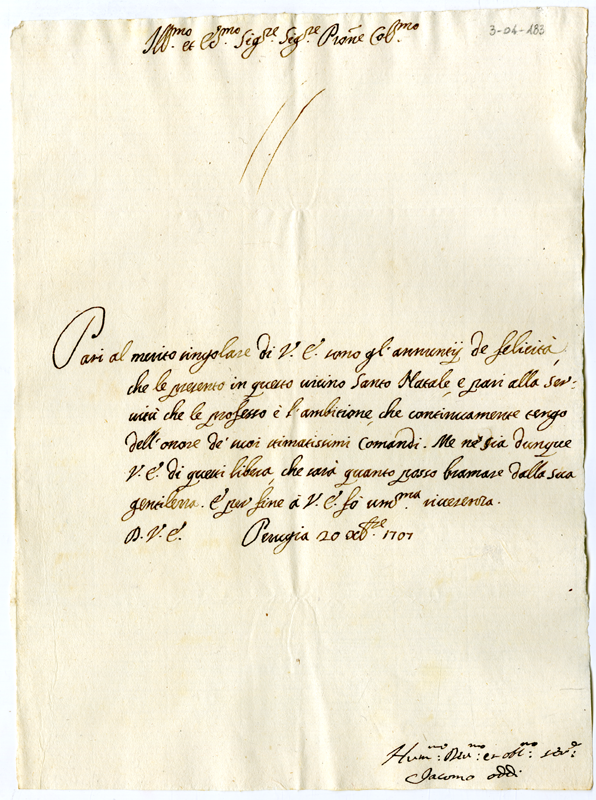 3-04-183
Ill.mo et Ecc.mo Sig.re Sig.re Prone Col.mo
Pari al merito singolare di V. E. sono gl'annuntij de felicità,
che le presento in questo vicino Santo Natale, e pari alla ser-
vitù che le professo è l'ambitione, che continuamente tengo
dell'onore de' suoi stimatissimi Comandi. Me ne sia dunque
V. E. di questi libera, che sarà quanto posso bramare dalla sua
gentilezza. E per fine à V. E. fò um.ma riverenza.
D. V. E. Perugia 20 Xb.re 1707
Hum.mo Dev.mo et obl.mo ser.e
Jacomo oddi